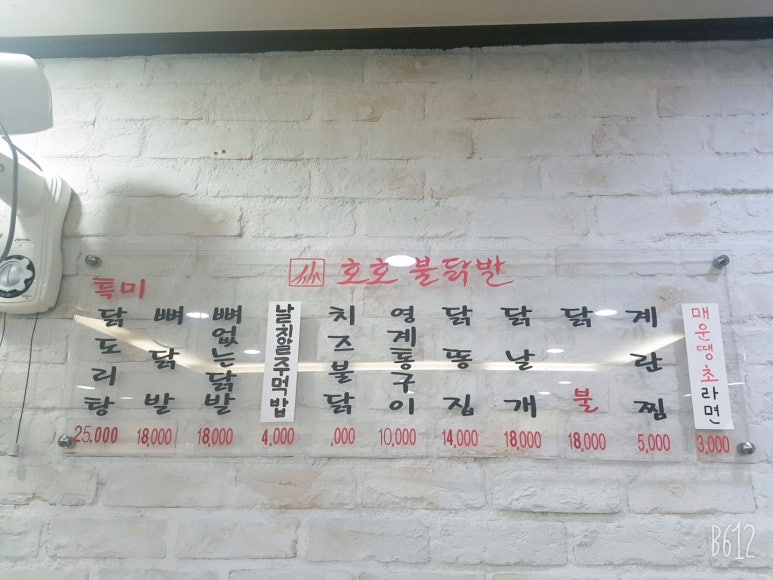 호호 불닭발
특미
닭도리탕 25,000
뼈닭발 18,000
뼈없는닭발 18,000
날치알주먹밥 4,000
치즈불닭 ,000
영계통구이 10,000
닭똥집 14,000
닭날개 18,000
닭불 18,000
계란찜 5,000
매운땡초라면 3,000
B612